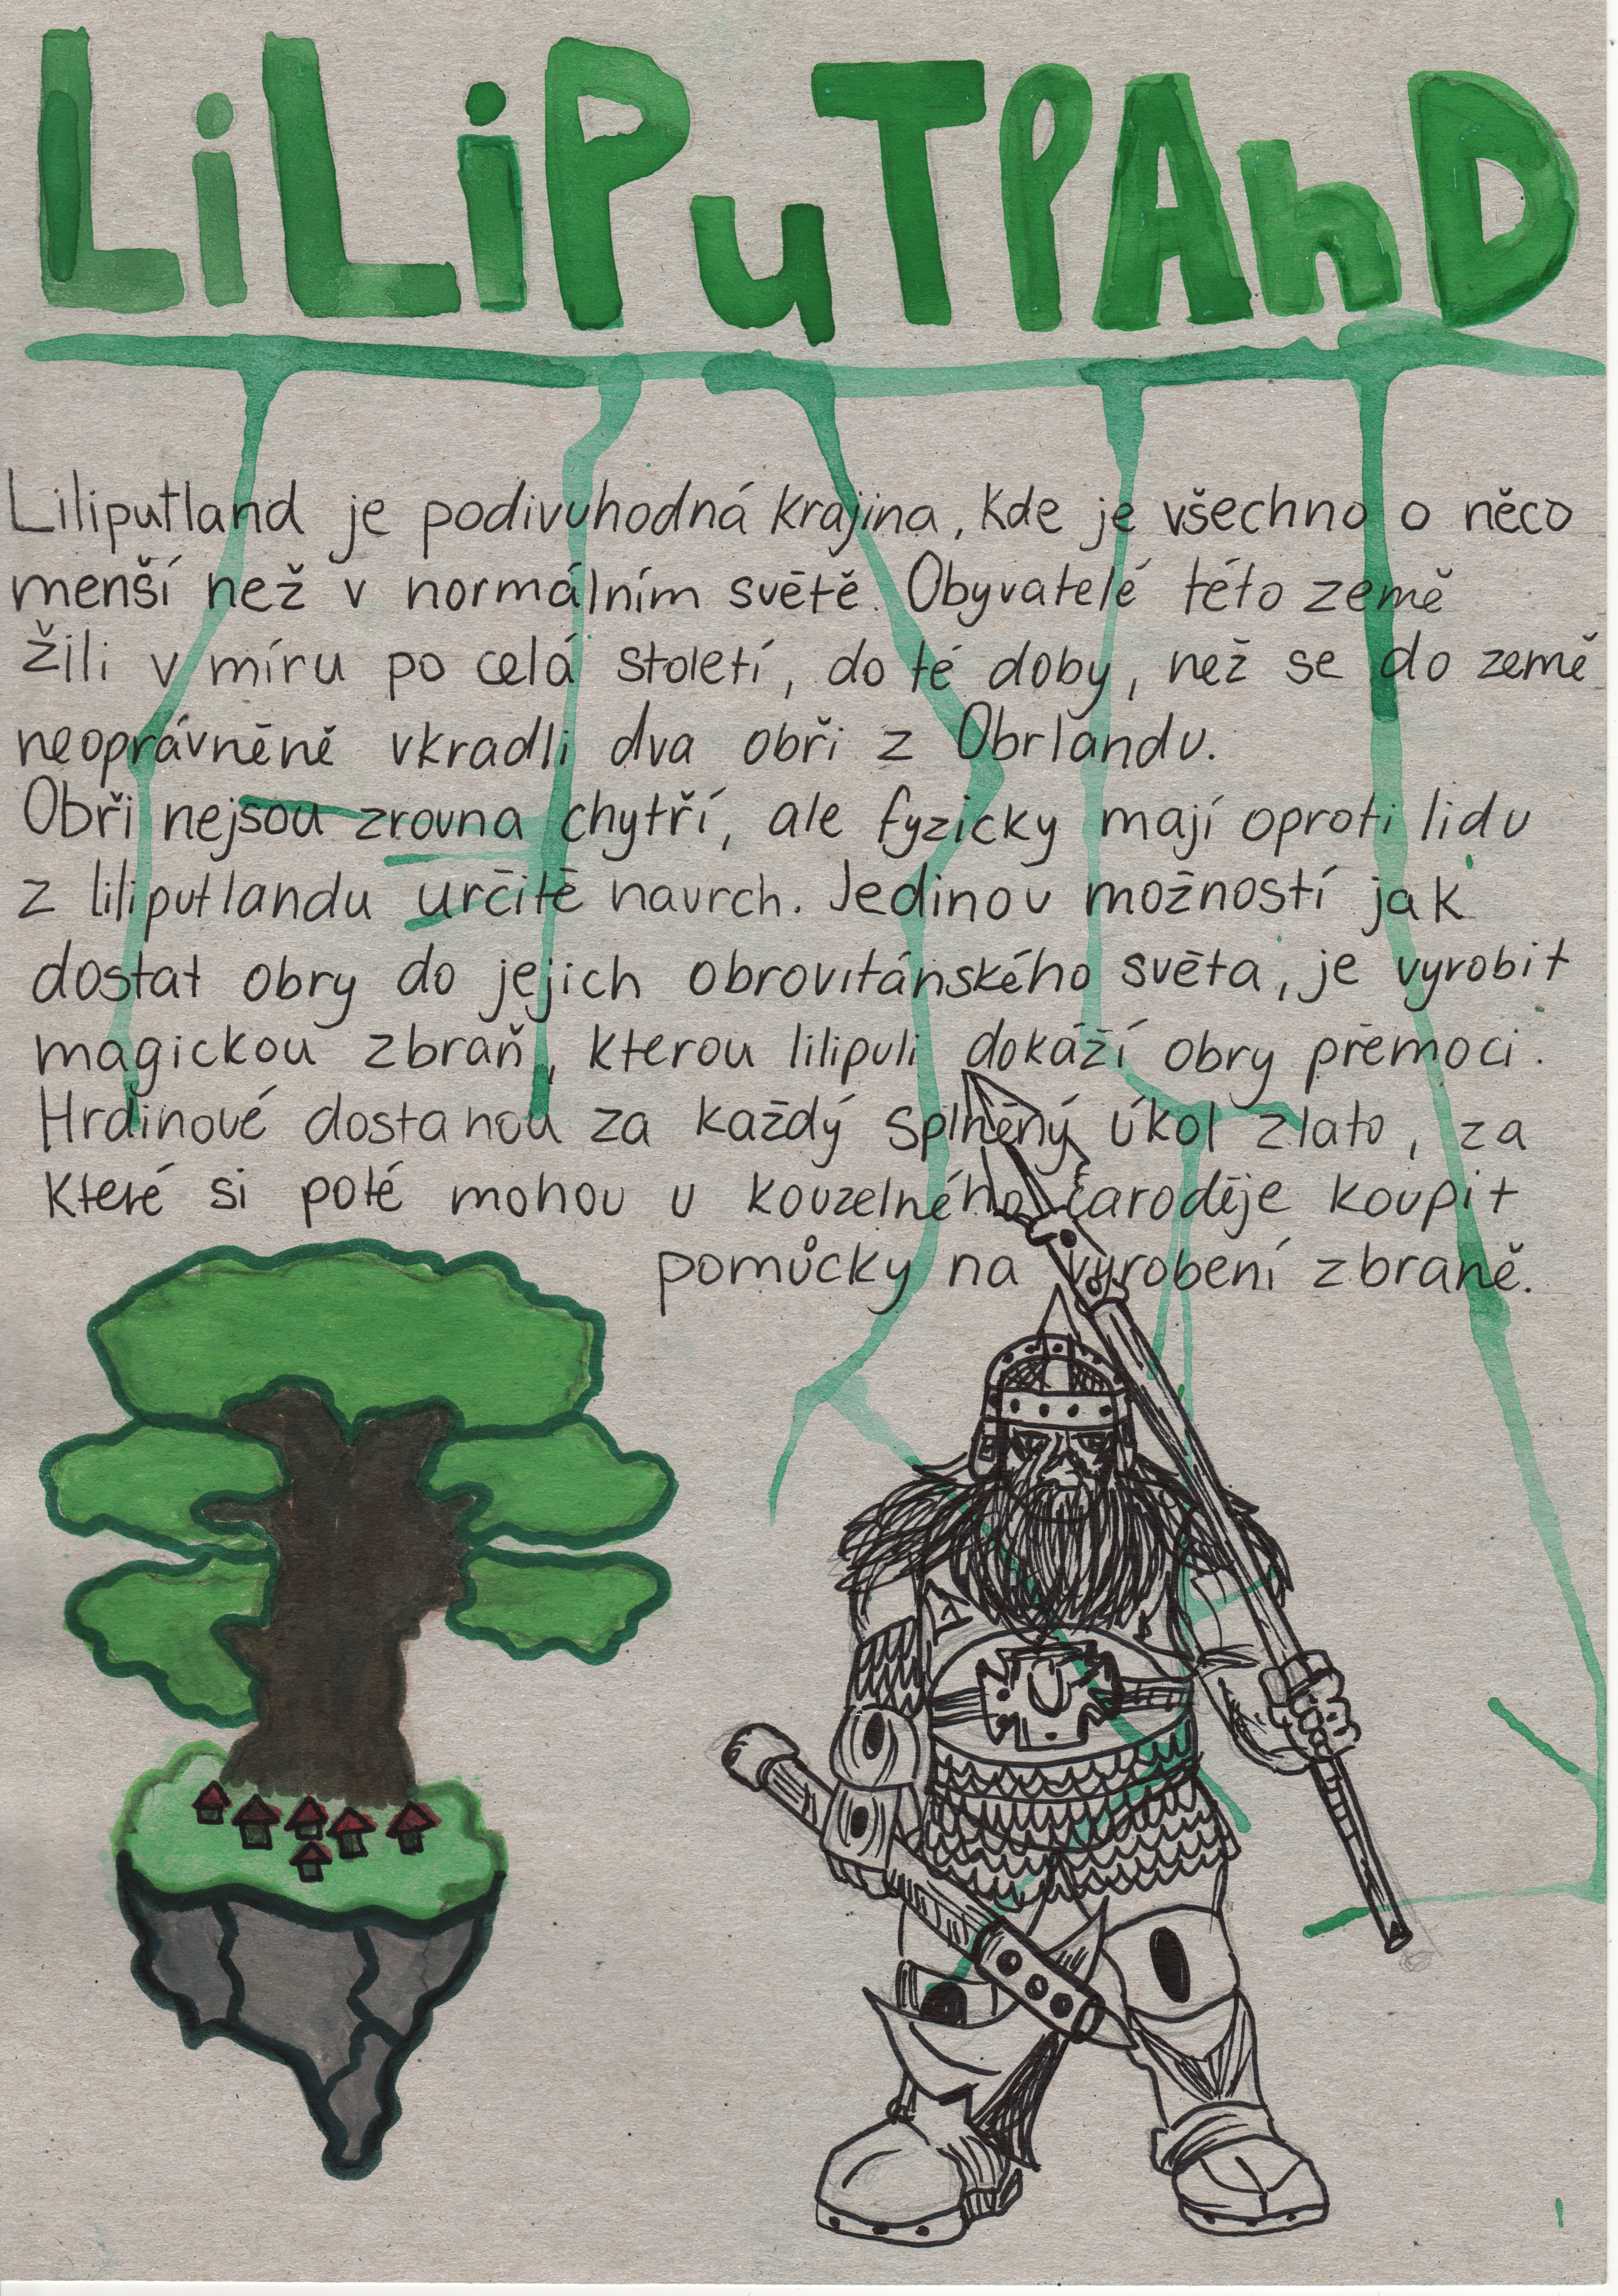 LiLiPuTPAnD
Liliputland je podivuhodná krajina, kde je všechno o něco
menší než v normálním světě. Obyvatelé této země
žili v míru po celá století, do té doby, než se do země
neoprávněně vkradli dva obři z Obrlandu.
Obři nejsou zrovna chytří, ale fyzicky mají oproti lidu
z liliputlandu určitě navrch. Jedinou možností jak
dostat obry do jejich obrovitánského světa, je vyrobit
magickou zbraň, kterou lilipuli dokáží obry přemoci.
Hrdinové dostanou za každý splněný úkol zlato, za
které si poté mohou u kouzelného čaroděje koupit
pomůcky na vyrobení zbraně.